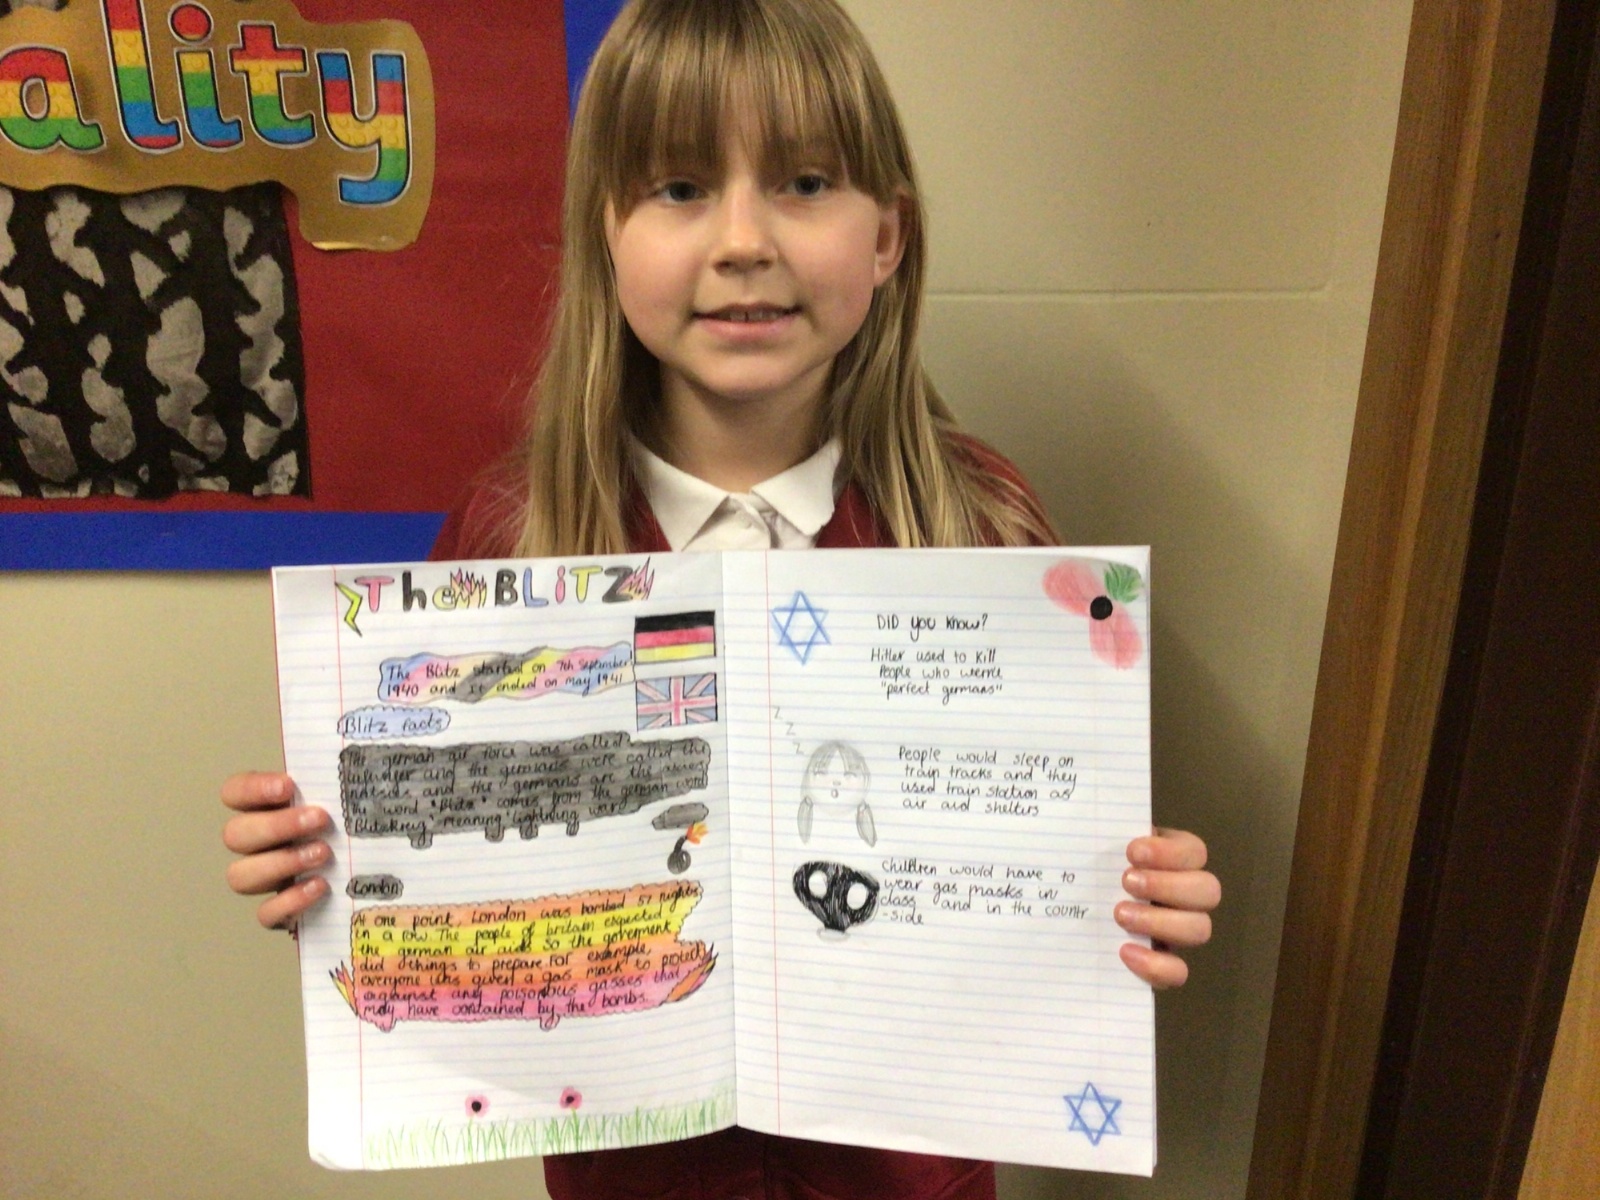 ality
The BLITZ
The Blitz started on 7th September
1940 and It ended on may 1941
Blitz facts
The german air force was called
and the germans were called the
and the germans are the
the word "Blitz" comes from the german word
"Blitzkreig" meaning lightning war
London
At one point, London was bombed 57 nights
in a row. The people of britain expected
the german air aids so the goverment
did things to prepare. For example,
everyone was given a gas mask to protect
against any poisonous gasses that
may have contained by the bombs.
DID you know?
Hitler used to kill
People who
"perfect germans"
z
z
z
People would sleep on
train tracks and they
used train station as
air aid shelters
children would have to
wear gas masks in
class and in the countr
-side